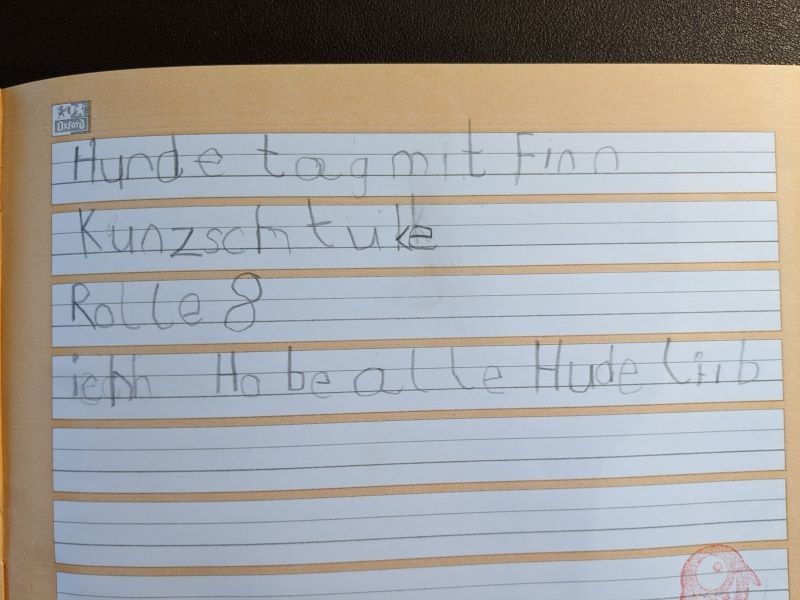 Oxford
Hunde tag mit Finn
Kunzschtuke
Rolle 8
ich Habe alle Hude liib